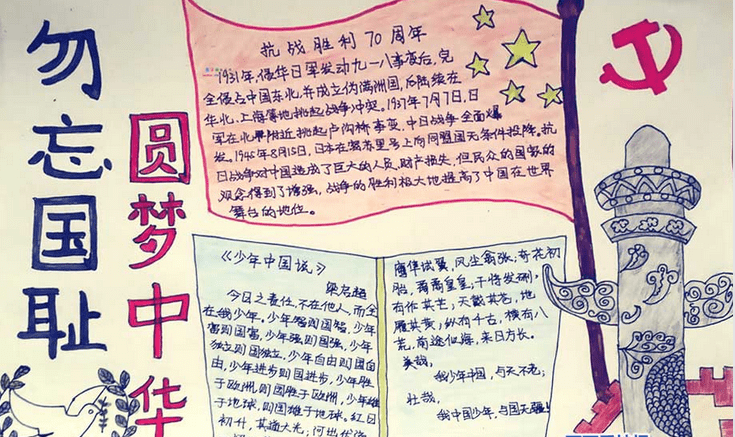 勿忘国耻
圆梦中华
抗战胜利70周年
1931年，侵华日军发动九一八事变后，完
全侵占中国东北，并成立伪满洲国，后陆续在
华北、上海等地挑起战争冲突。1937年7月7日，日
军在北平附近挑起卢沟桥事变，中日战争全面爆
发。1945年8月15日，日本在密苏里号上向同盟国无条件投降。抗
日战争对中国造成了巨大的人员、财产损失，但民众的国家的
观念得到了增强，战争的胜利极大地提高了中国在世界
舞台的地位。
《少年中国说》
梁启超
今日之责任，不在他人，而全
在我少年。少年智则国智，少年
富则国富，少年强则国强，少年
独立则国独立，少年自由则国自
由，少年进步则国进步，少年胜
于欧洲，则国胜于欧洲，少年雄
于地球，则国雄于地球。红日
初升，其道大光；河出伏流
鹰隼试翼，风尘翕张；奇花初
胎，矞矞皇皇；干将发硎，
有作其芒；天戴其苍，地
履其黄；纵有千古，横有八
荒，前途似海，来日方长。
美哉，
我少年中国，与天不老；
壮哉，
我中国少年，与国无疆！